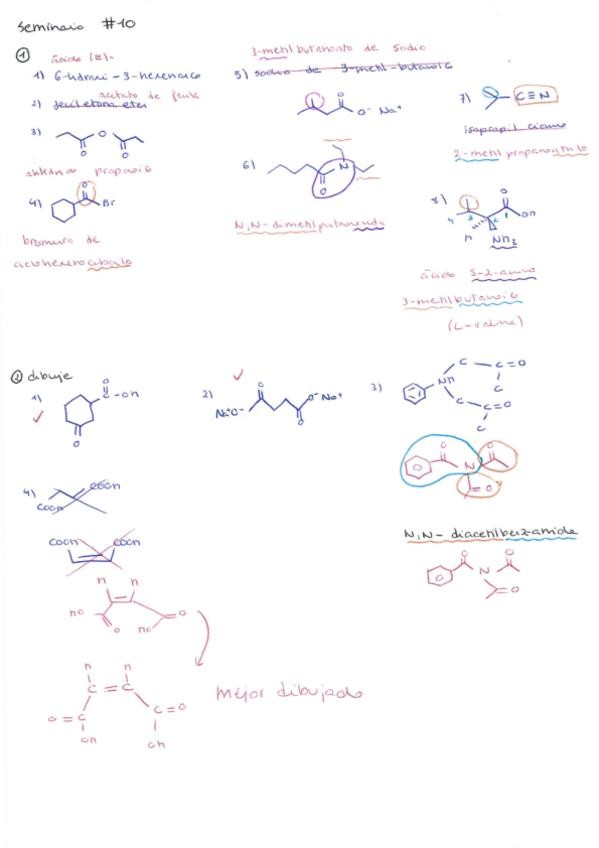 Seminario #10
①
ácido (E)-
1) 6-hidroxi-3-hexenoico
acetato de fenilo
2)
3)
anhídrido propanoico
4)
Br
bromuro de
ciclohexanocarbonilo
3-metilbutanoato de sodio
5) sodio de 3-metil-butanoic
O⁻ Na⁺
6)
N
O
N,N-dimetilpentanamida
7)
C≡N
isopropil cianuro
2-metil propanonitrilo
8)
O
OH
4 3 2 1
H
NH₂
ácido S-2-amino
3-metilbutanoico
(L-valina)
② dibuje
1) O
C-OH
O
2) O
Na⁺O⁻
O⁻Na⁺
O
3) C C=O
NH C
C C=O
C
O O
N
O
N,N-diacetilbenzamida
O O
N
O
4) COOH
COOH
COOH COOH
H H
HO O
O HO
H H
C=C
O=C C=O
OH OH
mejor dibujado